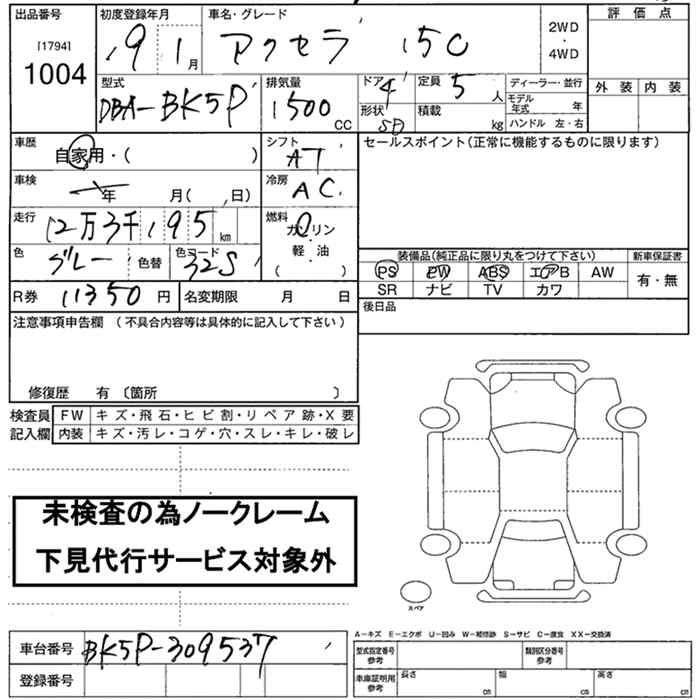 出品番号 初度登録年月 車名・グレード 評価点
[1794]
1004 19 1月 アクセラ 15C 2WD・4WD
型式 排気量 ドア 4 定員 5人 ディーラー・並行 外装 内装
DBA-BK5P 1500CC 形状 SD 積載 kg モデル年式 年
ハンドル 左・右
車歴 自家用・( ) シフト AT セールスポイント(正常に機能するものに限ります)
車検 年 月( 日) 冷房 AC
走行 12万3千195km 燃料 ガソリン
軽・油
( )
色 グレー 色替 色コード 32S
装備品(純正品に限り丸をつけて下さい) 新車保証書
PS PW ABS エアB AW 有・無
SR ナビ TV カワ
R券 11350円 名変期限 月 日 後日品
注意事項申告欄 (不具合内容等は具体的に記入して下さい)
修復歴 有 〔箇所 〕
検査員 FW キズ・飛石・ヒビ割・リペア跡・X要
記入欄 内装 キズ・汚レ・コゲ・穴・スレ・キレ・破レ
未検査の為ノークレーム
下見代行サービス対象外
スペア
A-キズ E-エクボ U-凹み W-補修跡 S-サビ C-腐食 XX-交換済
車台番号 BK5P-309537 型式指定番号 参考 類別区分番号 参考
登録番号 車庫証明用 参考 長さ cm 幅 cm 高さ cm